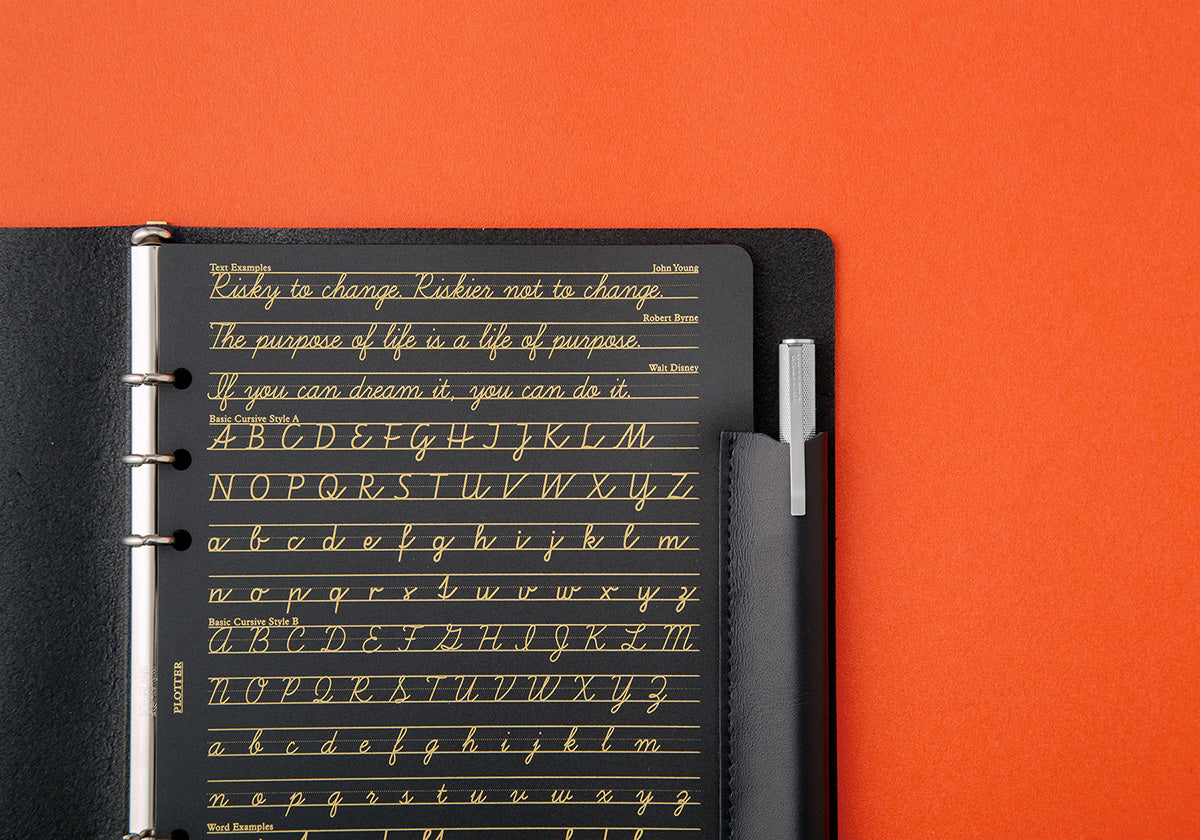 Text Examples John Young
Risky to change. Riskier not to change.
Robert Byrne
The purpose of life is a life of purpose.
Walt Disney
If you can dream it, you can do it.
Basic Cursive Style A
A B C D E F G H I J K L M
N O P Q R S T U V W X Y Z
a b c d e f g h i j k l m
n o p q r s t u v w x y z
Basic Cursive Style B
A B C D E F G H I J K L M
N O P Q R S T U V W X Y Z
a b c d e f g h i j k l m
n o p q r s t u v w x y z
Word Examples
PLOTTER